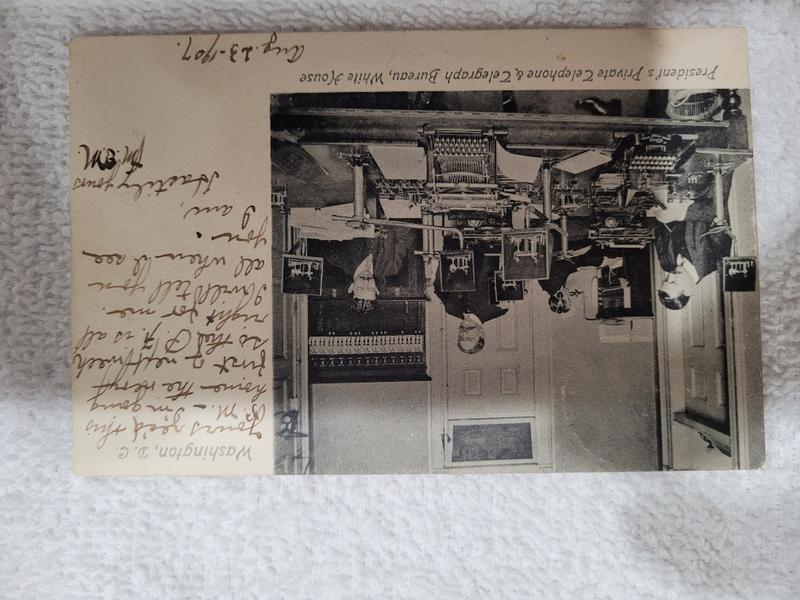 Washington, D. C.
Yours rec'd this
P. M. - I'm going
home the very
first of next week
so the P. J. is all
right for me.
I will tell you
all when I see
you.
I am,
Hastily yours
M.E.M.
President's Private Telephone & Telegraph Bureau, White House
Aug. 23-1907.